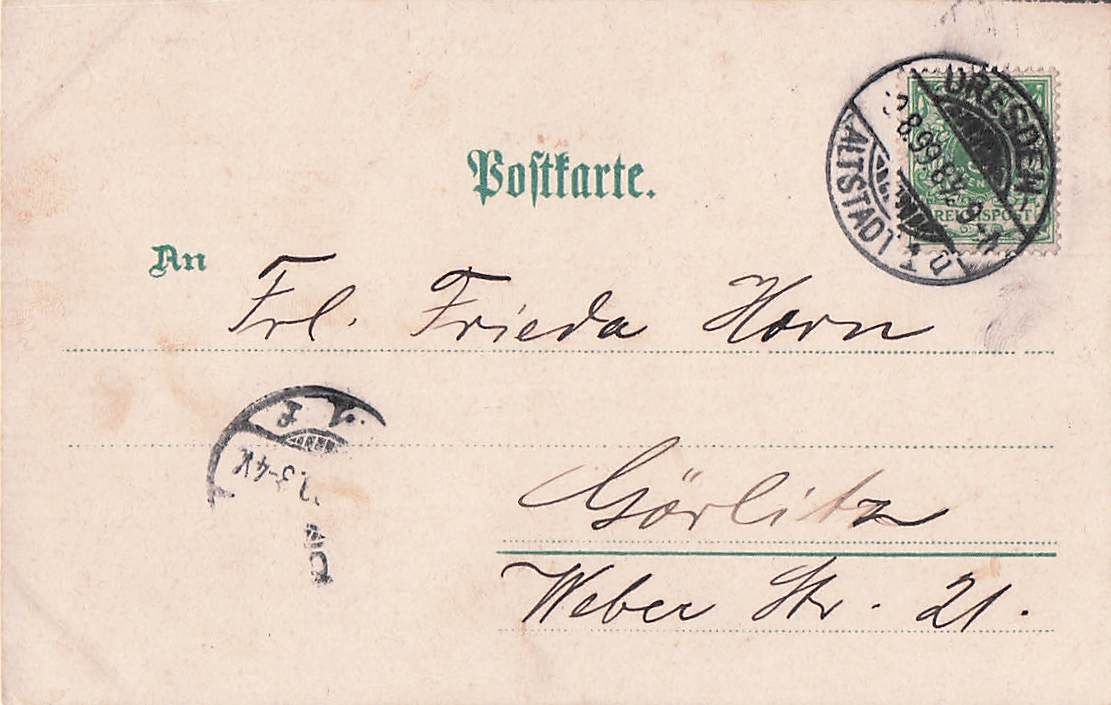 Postkarte.
DRESDEN
ALTSTADT.
8.99.8
REICHSPOST
An
Frl. Frieda Horn
3-4V
Görlitz
Weber Str. 21.